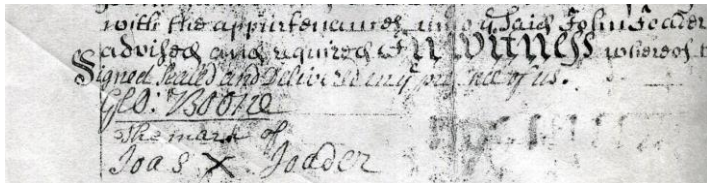 with the appurtenances unto y said John Joader
advised and required In witness whereof
Signed Sealed and Delivered in y presence of us.
Geo: Boone
The mark of
Joas X Joader